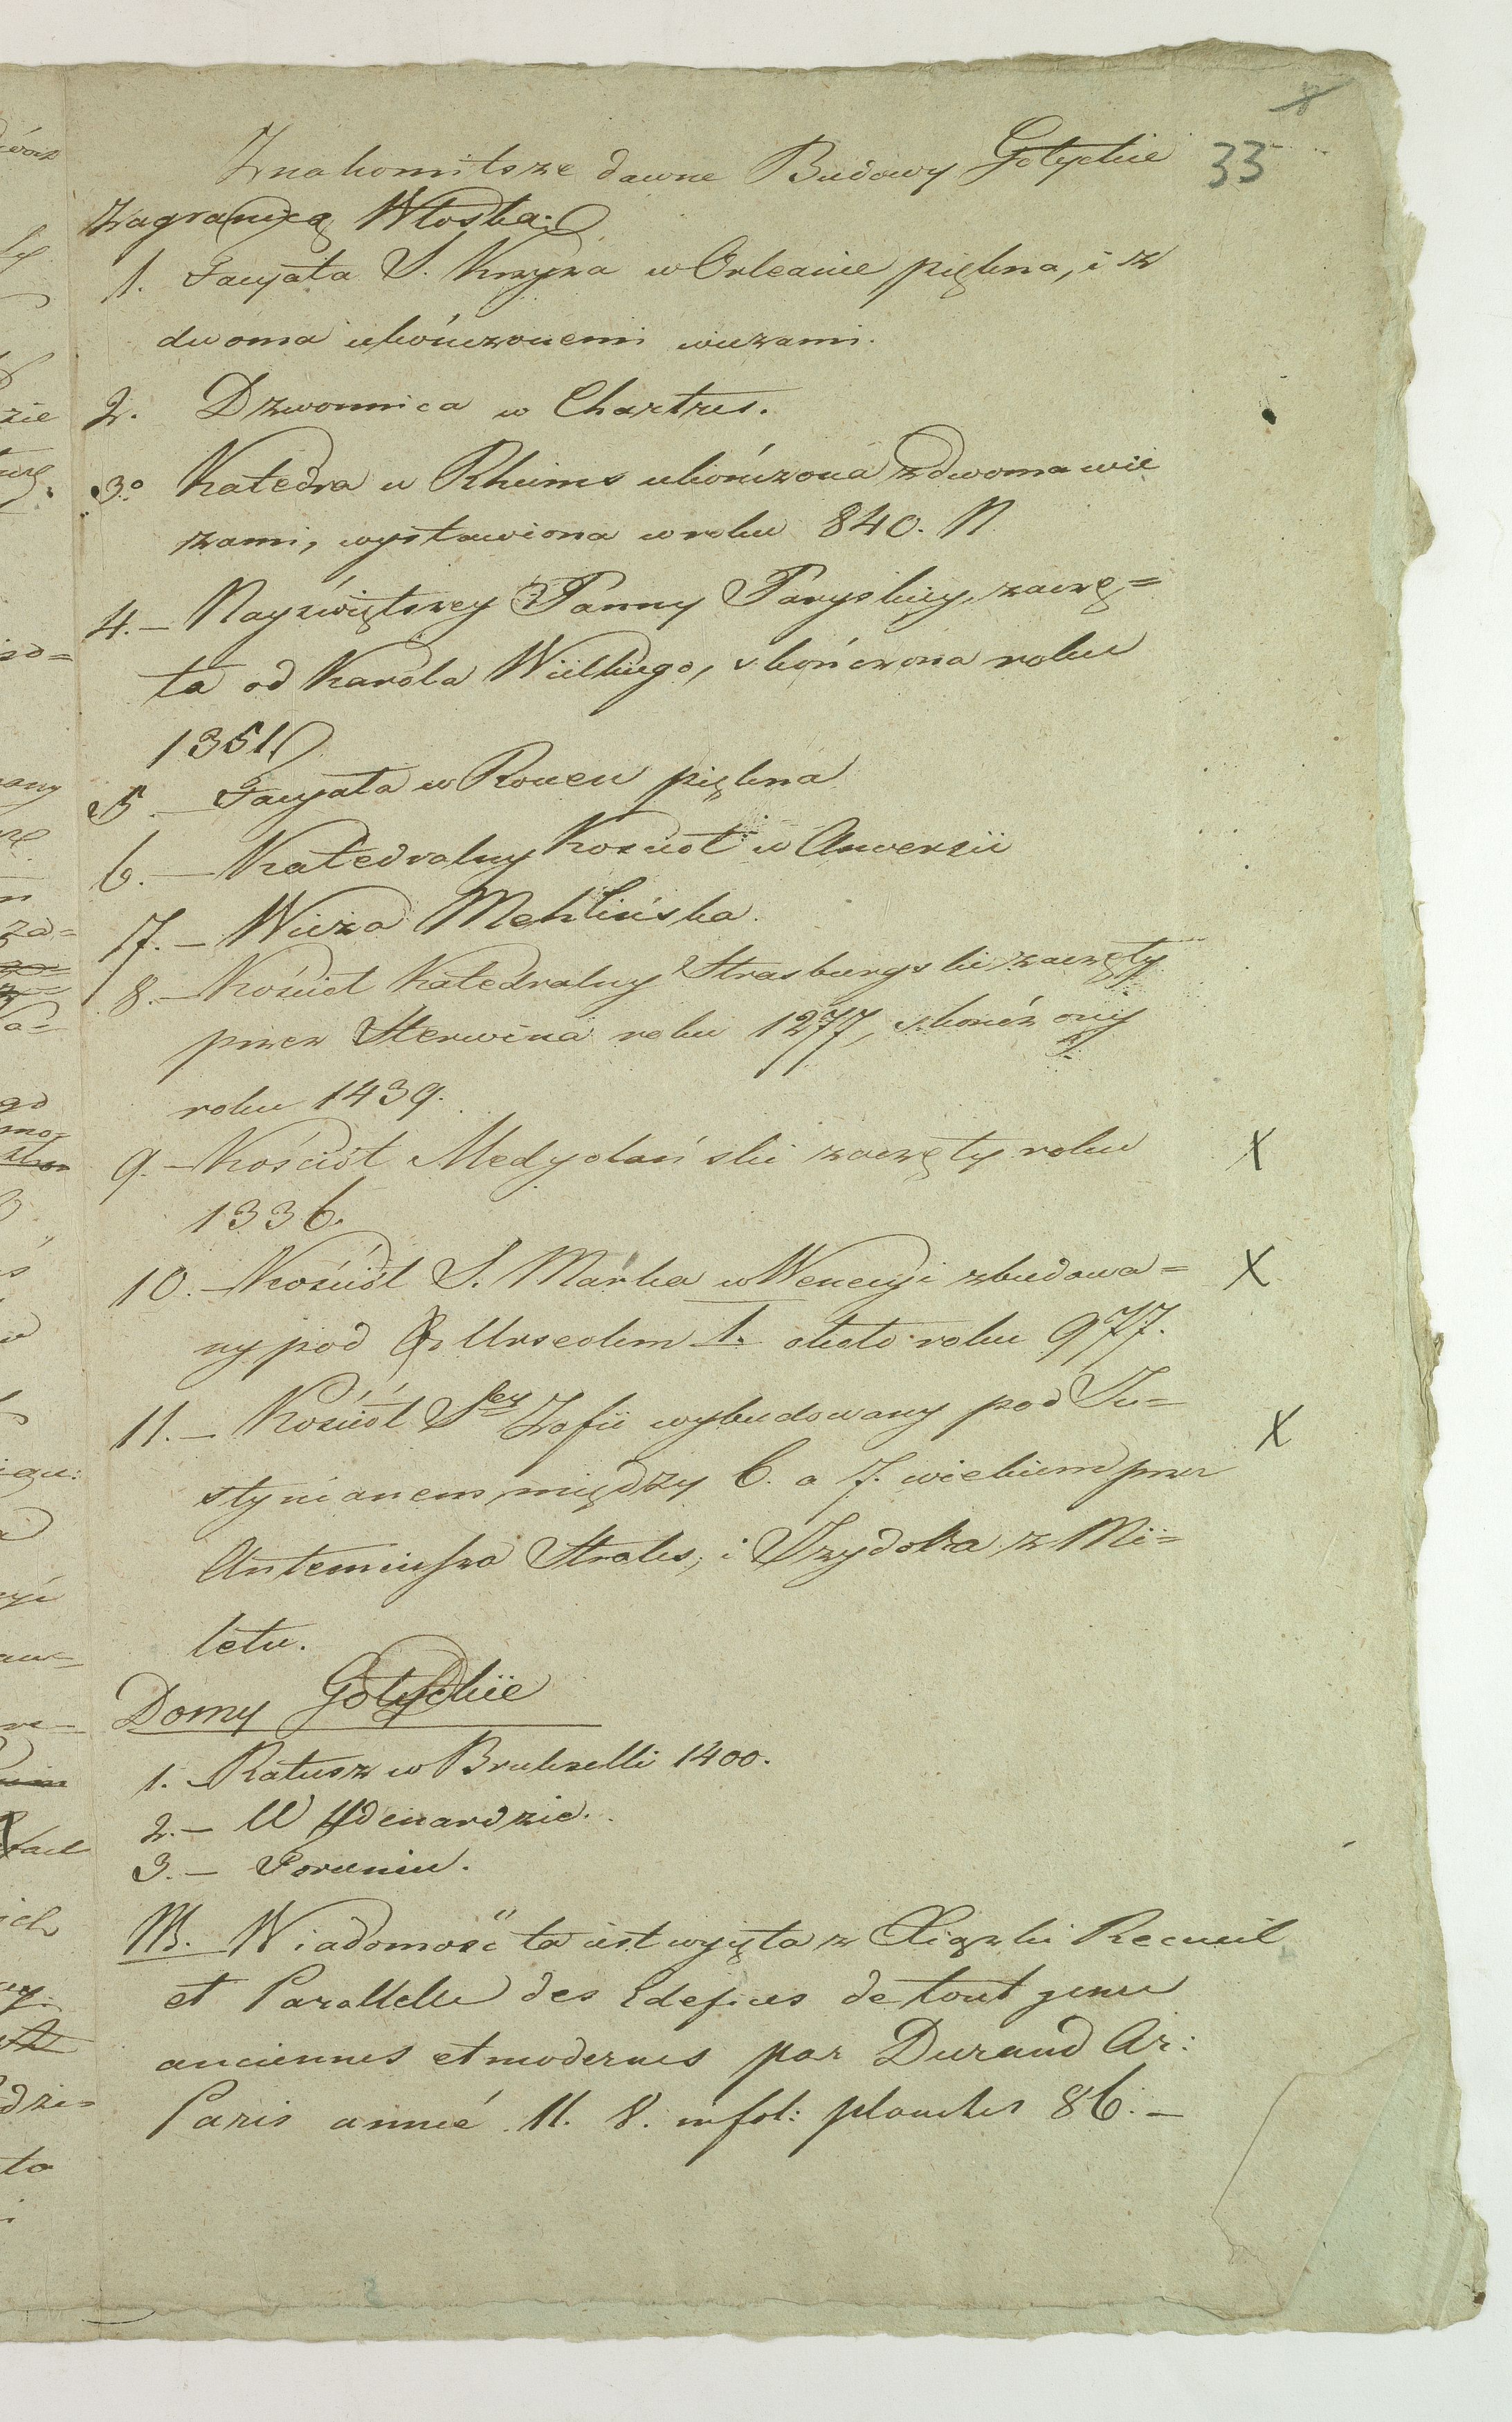 33
Znakomitsze dawne Budowy Gotyckie
zagranicą Włoską.
1. Facyata S. Krzyża w Orleanie piękna, i z
dwoma ukończonemi wieżami.
2. Dzwonnica w Chartres.
3.o Katedra w Rheims ukończona z dwoma wie
żami, wystawiona w roku 840. N
4. — Nayświętszey Panny Paryskiey, zaczę=
ta od Karola Wielkiego, skończona roku
1351
5. — Facyata w Rouen piękna
6. — Katedralny Kościoł w Anwersii
7. — Wieża Mehlińska.
8. — Kościoł Katedralny Strasburgski zaczęty
przez Sterwina roku 1277, skończony
roku 1439.
9. — Kościół Medyolański zaczęty roku X
1336.
10. — Kościół S. Marka w Wenecyi zbudowa= X
ny pod Urseolem I. około roku 977.
11. — Kościół Stey Zofii wybudowany pod Ju= X
stynianem między 6. a 7. wiekiem przez
Antemiusza Strales, i Izydora z Mi=
letu.
Domy Gotyckie
1. — Ratusz w Brukselli 1400.
2. — W Udenardzie.
3. — Toruniu.
NB. Wiadomość ta iest wyięta z Xiążki Recueil
et Parallelle des Edefices de tout genre
anciennes et modernes par Durand Ar:
Paris anneé 11. 8. in fol: planches 86. —